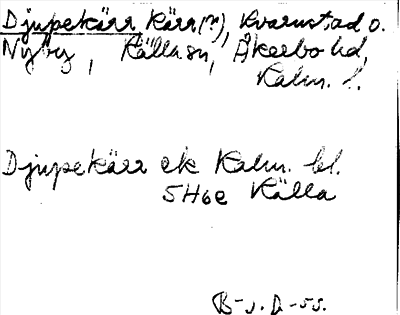 Djupekärr kärr(n), Kvarnstad o.
Nyby, Källa sn, Åkerbo hd,
Kalm. l.
Djupekärr ek Kalm. bl.
5H6e Källa
B-J. D-55.